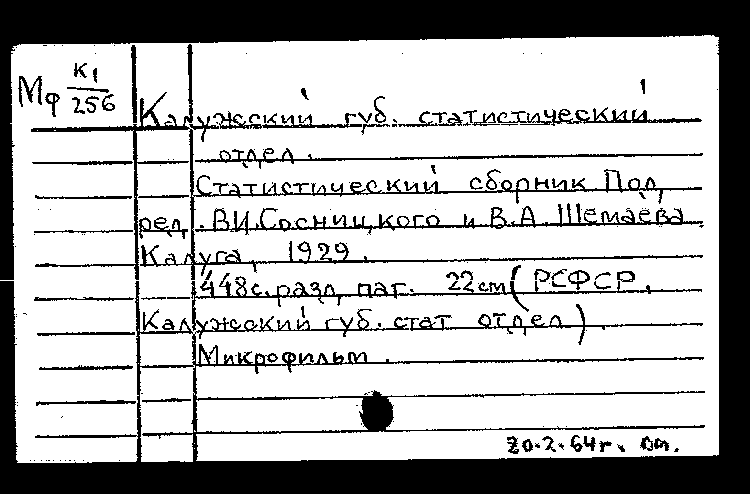 Мф К1/256
Калужский губ. статистический
отдел.
Статистический сборник Под
ред. В.И.Сосницкого и В.А Шемаева
Калуга, 1929.
448с.разд. паг. 22см (РСФСР.
Калужский губ. стат отдел).
Микрофильм.
20.2.64г.